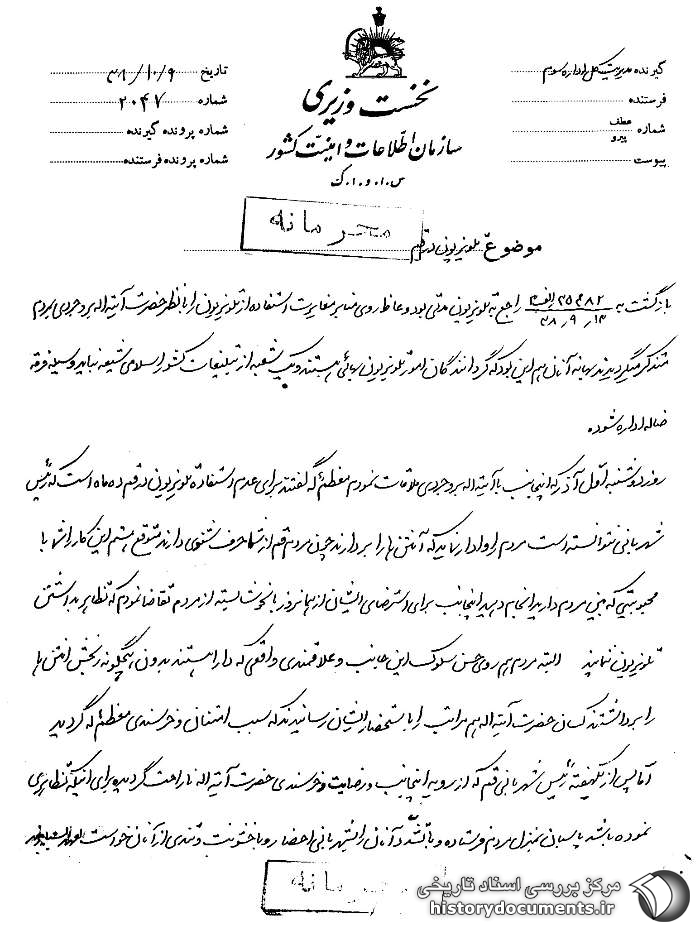 گیرنده مدیریت کل اداره سوم
فرستنده
شماره عطف
پیرو
پیوست
نخست وزیری
سازمان اطلاعات و امنیت کشور
س.ا.و.ا.ک
تاریخ ۳۸/۱۰/۹
شماره ۲۰۴۷
شماره پرونده گیرنده
شماره پرونده فرستنده
محرمانه
موضوع تلویزیون در قم
بازگشت به ۲۵۳۸۲/الف ۳۸/۹/۱۳ راجع به تلویزیون مدتی بود وعاظ روی منابر مغایرت استفاده از تلویزیون را با نظر حضرت آیة اله بروجردی بمردم
متذکر میگردیدند بهانه آنان هم این بود که گردانندگان امور تلویزیون بهائی هستند و یک شعبه از تبلیغات کشور اسلامی شیعه نباید وسیله فرقه
ضاله اداره شود.
روز دوشنبه اول آذر که اینجانب با آیة اله بروجردی ملاقات نمودم معظم له گفتند برای عدم استفاده تلویزیون در قم ده ماه است که رئیس
شهربانی نتوانسته است مردم را وادار نماید که آنتن ها را بردارند چون مردم قم از شما حرف شنوی دارند متوقع هستم این کار را شما با
محبوبیتی که بین مردم دارید انجام دهید اینجانب برای استرضای ایشان از همانروز با نحو شایسته از مردم تقاضا نمودم که تظاهر بداشتن
تلویزیون ننمایند البته مردم هم روی حسن سلوک این جانب و علاقمندی واقعی که دارا هستند بدون هیچگونه رنجش آنتن ها
را برداشتند کسان حضرت آیة اله هم مراتب را باستحضار ایشان رسانیدند که سبب امتنان و خرسندی معظم له گردید
اما پس از یکهفته رئیس شهربانی قم که از رویه اینجانب و رضایت و خرسندی حضرت آیة اله ناراحت گردیده برای اینکه تظاهری
نموده باشد پاسبان بمنزل مردم فرستاده و با تشدد آنان را بشهربانی احضار و با خشونت و تندی از آنان خواست
محرمانه
مرکز بررسی اسناد تاریخی
historydocuments.ir